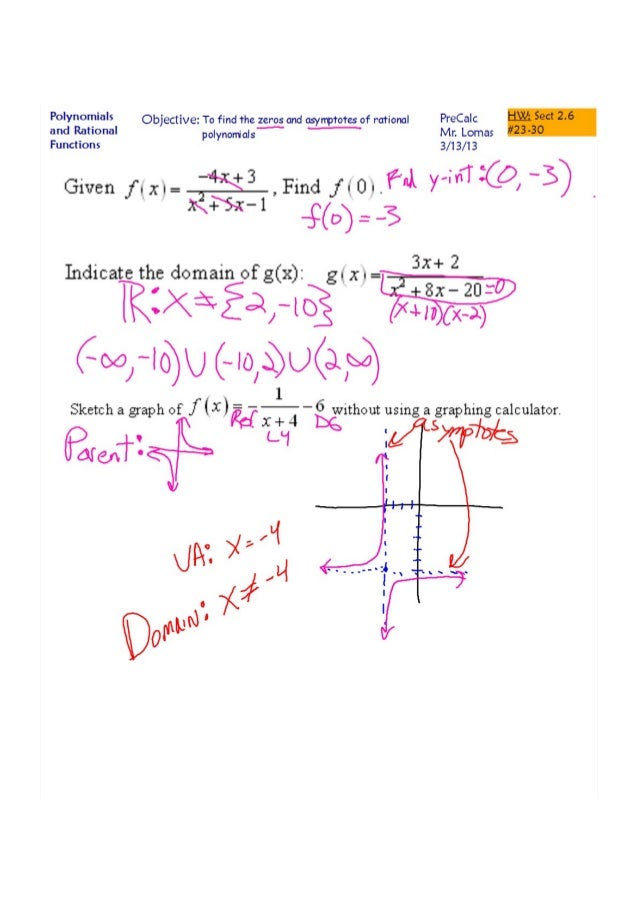 Polynomials and Rational Functions
Objective: To find the zeros and asymptotes of rational polynomials
PreCalc
Mr. Lomas
3/13/13
HW: Sect 2.6
#23-30
Given f(x) = (-4x+3)/(x²+5x-1), Find f(0). Find y-int: (0, -3)
f(0) = -3
Indicate the domain of g(x): g(x) = (3x+2)/(x²+8x-20) =0
ℝ: x ≠ {2, -10}
(x+10)(x-2)
(-∞, -10) ∪ (-10, 2) ∪ (2, ∞)
Sketch a graph of f(x) = -1/(x+4) - 6 without using a graphing calculator.
Ref L4 D6
Parent:
asymptotes
VA: x = -4
Domain: x ≠ -4